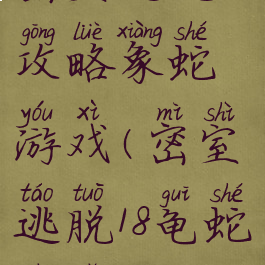 gōng lüè xiàng shé
攻略象蛇
yóu xì mì shì
游戏(密室
táo tuō guī shé
逃脱18龟蛇